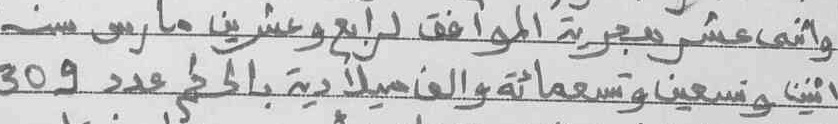 واثنى عشر هجرية الموافق لرابع وعشرين مارس سنة
اثنين وتسعين وتسعمائة والف ميلادية بالحكم عدد 309